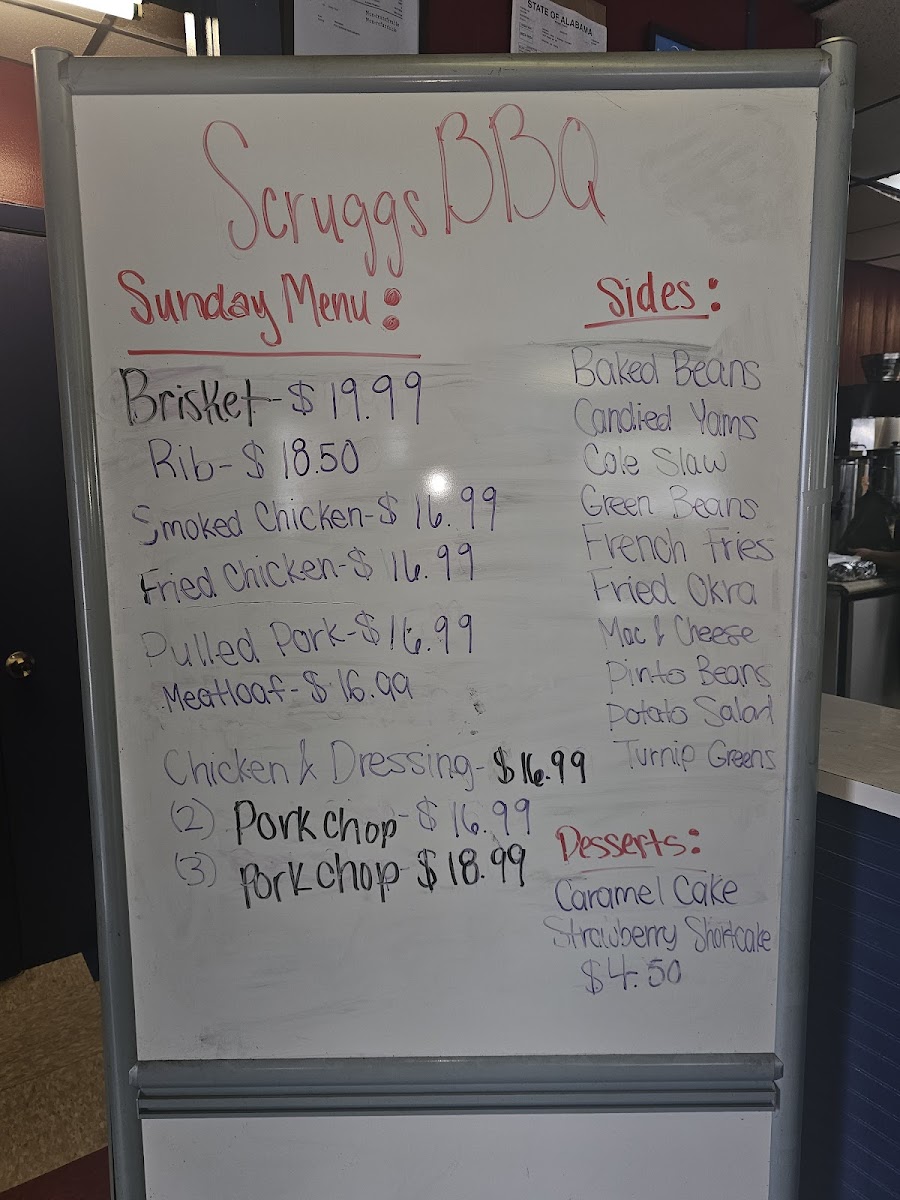 STATE OF ALABAMA
Scruggs BBQ
Sunday Menu:
Brisket-$19.99
Rib-$18.50
Smoked Chicken-$16.99
Fried Chicken-$16.99
Pulled Pork-$16.99
Meatloaf-$16.99
Chicken & Dressing-$16.99
(2) Pork chop-$16.99
(3) Pork chop-$18.99
Sides:
Baked Beans
Candied Yams
Cole Slaw
Green Beans
French Fries
Fried Okra
Mac & Cheese
Pinto Beans
Potato Salad
Turnip Greens
Desserts:
Caramel Cake
Strawberry Shortcake
$4.50